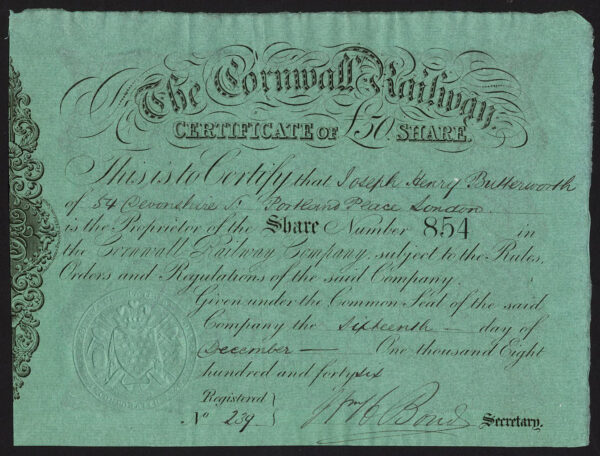 The Cornwall Railway.
CERTIFICATE OF £50. SHARE.
This is to Certify that Joseph Henry Butterworth
of 54 Devonshire St Portland Place London
is the Proprietor of the Share Number 854 in
the Cornwall Railway Company, subject to the Rules,
Orders and Regulations of the said Company.
Given under the Common Seal of the said
Company the Sixteenth day of
December One thousand Eight
hundred and forty six
Registered
No 239
Wm H Bond Secretary.